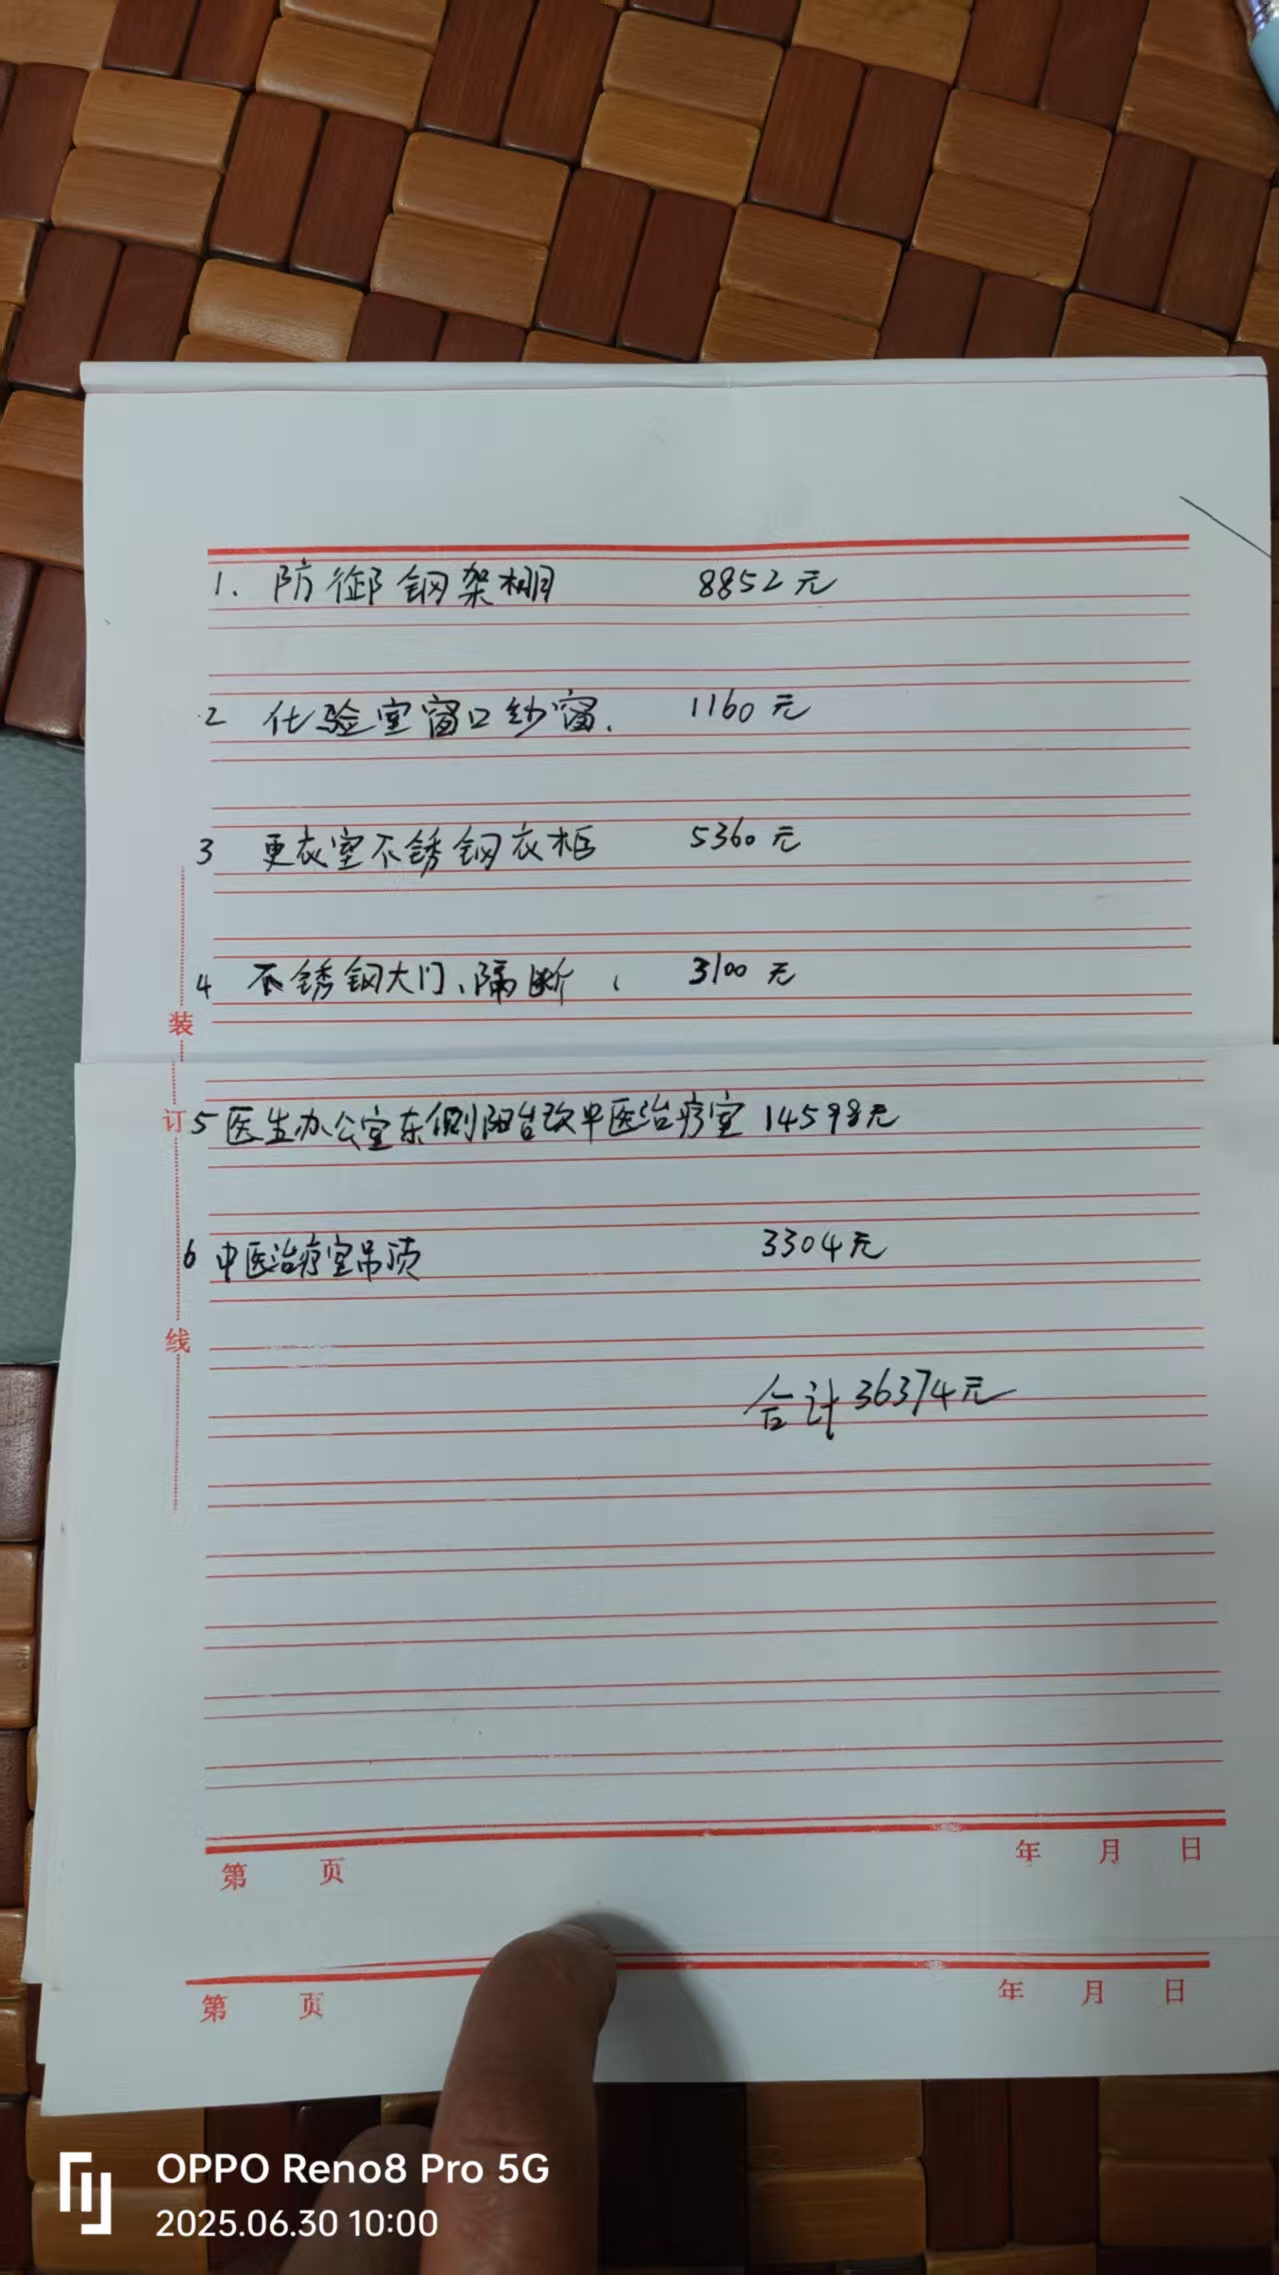 1. 防御钢架棚 8852元
2 化验室窗口纱窗. 1160元
3 更衣室不锈钢衣柜 5360元
4 不锈钢大门、隔断、 3100元
装
订
5 医生办公室东侧阳台改中医治疗室 14598元
6 中医治疗室吊顶 3304元
线
合计 36374元
第 页 年 月 日
第 页 年 月 日
OPPO Reno8 Pro 5G
2025.06.30 10:00